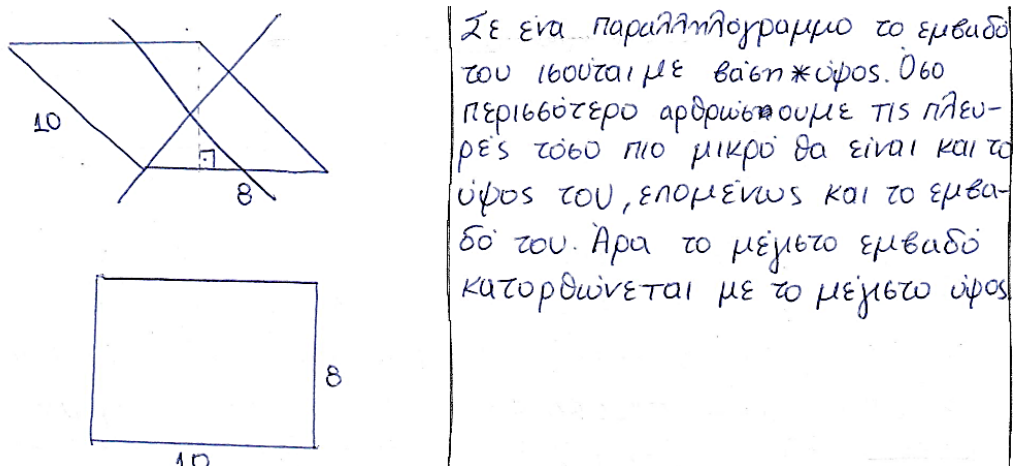 10
8
8
10
Σε ένα παραλληλόγραμμο το εμβαδό
του ισούται με βάση * ύψος. Όσο
περισσότερο αρθρώσουμε τις πλευ-
ρές τόσο πιο μικρό θα είναι και το
ύψος του, επομένως και το εμβα-
δό του. Άρα το μέγιστο εμβαδό
κατορθώνεται με το μέγιστο ύψος